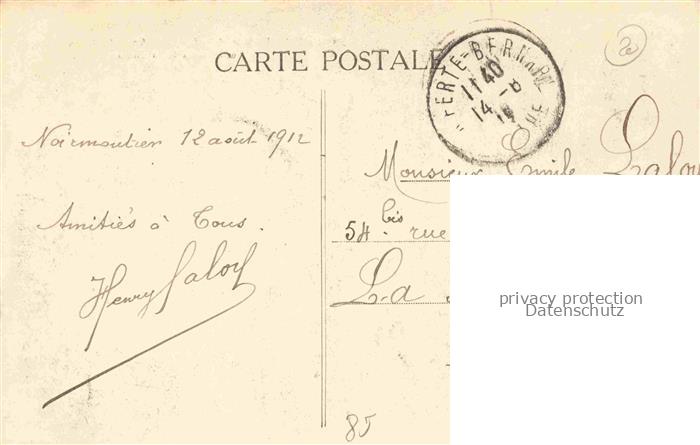 CARTE POSTALE
FERTE-BERNARD
11 40
14 -8
12
Noirmoutier 12 août 1912
Amitiés à Tous.
Henry Laloy
Monsieur Emile Laloy
54 bis rue
La
85
privacy protection
Datenschutz